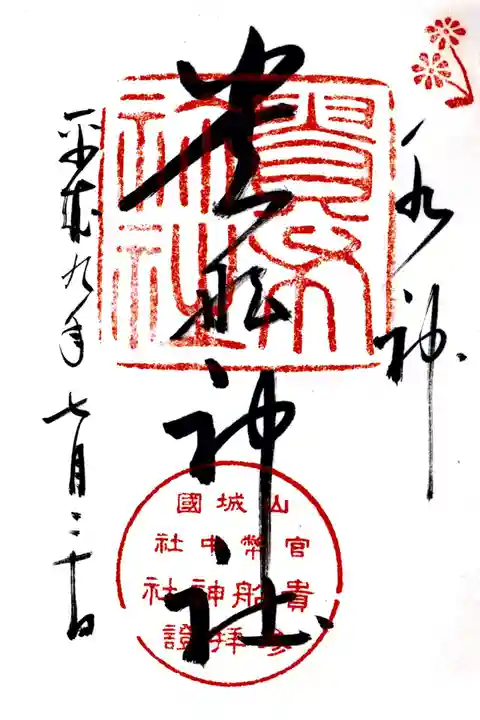 水神
貴布
祢社
貴船神社
山城國
官幣中社
貴船神社
參拜證
平成九年七月二十日